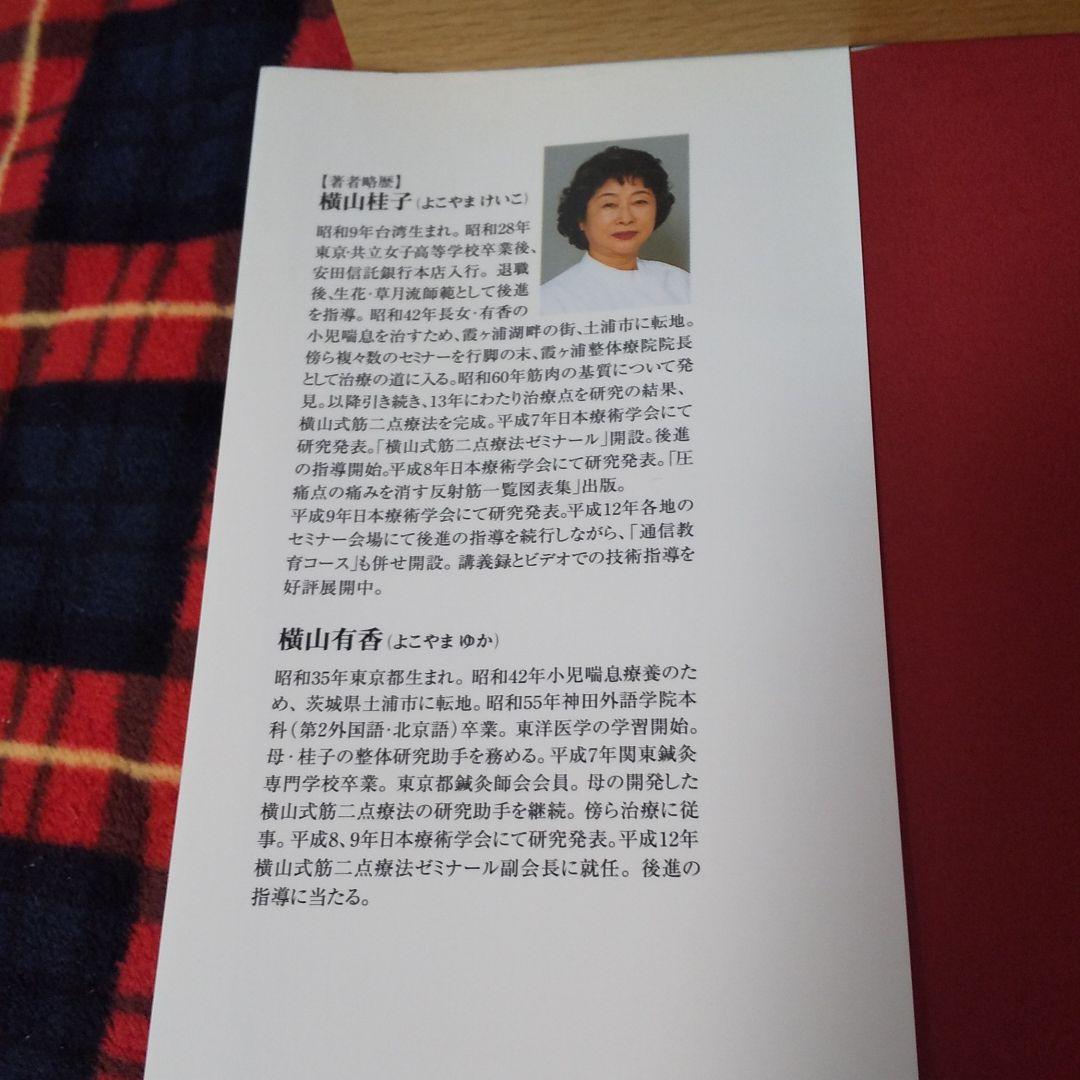 【著者略歴】
横山桂子(よこやま けいこ)
昭和9年台湾生まれ。昭和28年
東京・共立女子高等学校卒業後、
安田信託銀行本店入行。退職
後、生花・草月流師範として後進
を指導。昭和42年長女・有香の
小児喘息を治すため、霞ヶ浦湖畔の街、土浦市に転地。
傍ら複々数のセミナーを行脚の末、霞ヶ浦整体療院院長
として治療の道に入る。昭和60年筋肉の基質について発
見。以降引き続き、13年にわたり治療点を研究の結果、
横山式筋二点療法を完成。平成7年日本療術学会にて
研究発表。「横山式筋二点療法ゼミナール」開設。後進
の指導開始。平成8年日本療術学会にて研究発表。「圧
痛点の痛みを消す反射筋一覧図表集」出版。
平成9年日本療術学会にて研究発表。平成12年各地の
セミナー会場にて後進の指導を続行しながら、「通信教
育コース」も併せ開設。講義録とビデオでの技術指導を
好評展開中。
横山有香(よこやま ゆか)
昭和35年東京都生まれ。昭和42年小児喘息療養のた
め、茨城県土浦市に転地。昭和55年神田外語学院本
科(第2外国語・北京語)卒業。東洋医学の学習開始。
母・桂子の整体研究助手を務める。平成7年関東鍼灸
専門学校卒業。東京都鍼灸師会会員。母の開発した
横山式筋二点療法の研究助手を継続。傍ら治療に従
事。平成8、9年日本療術学会にて研究発表。平成12年
横山式筋二点療法ゼミナール副会長に就任。後進の
指導に当たる。